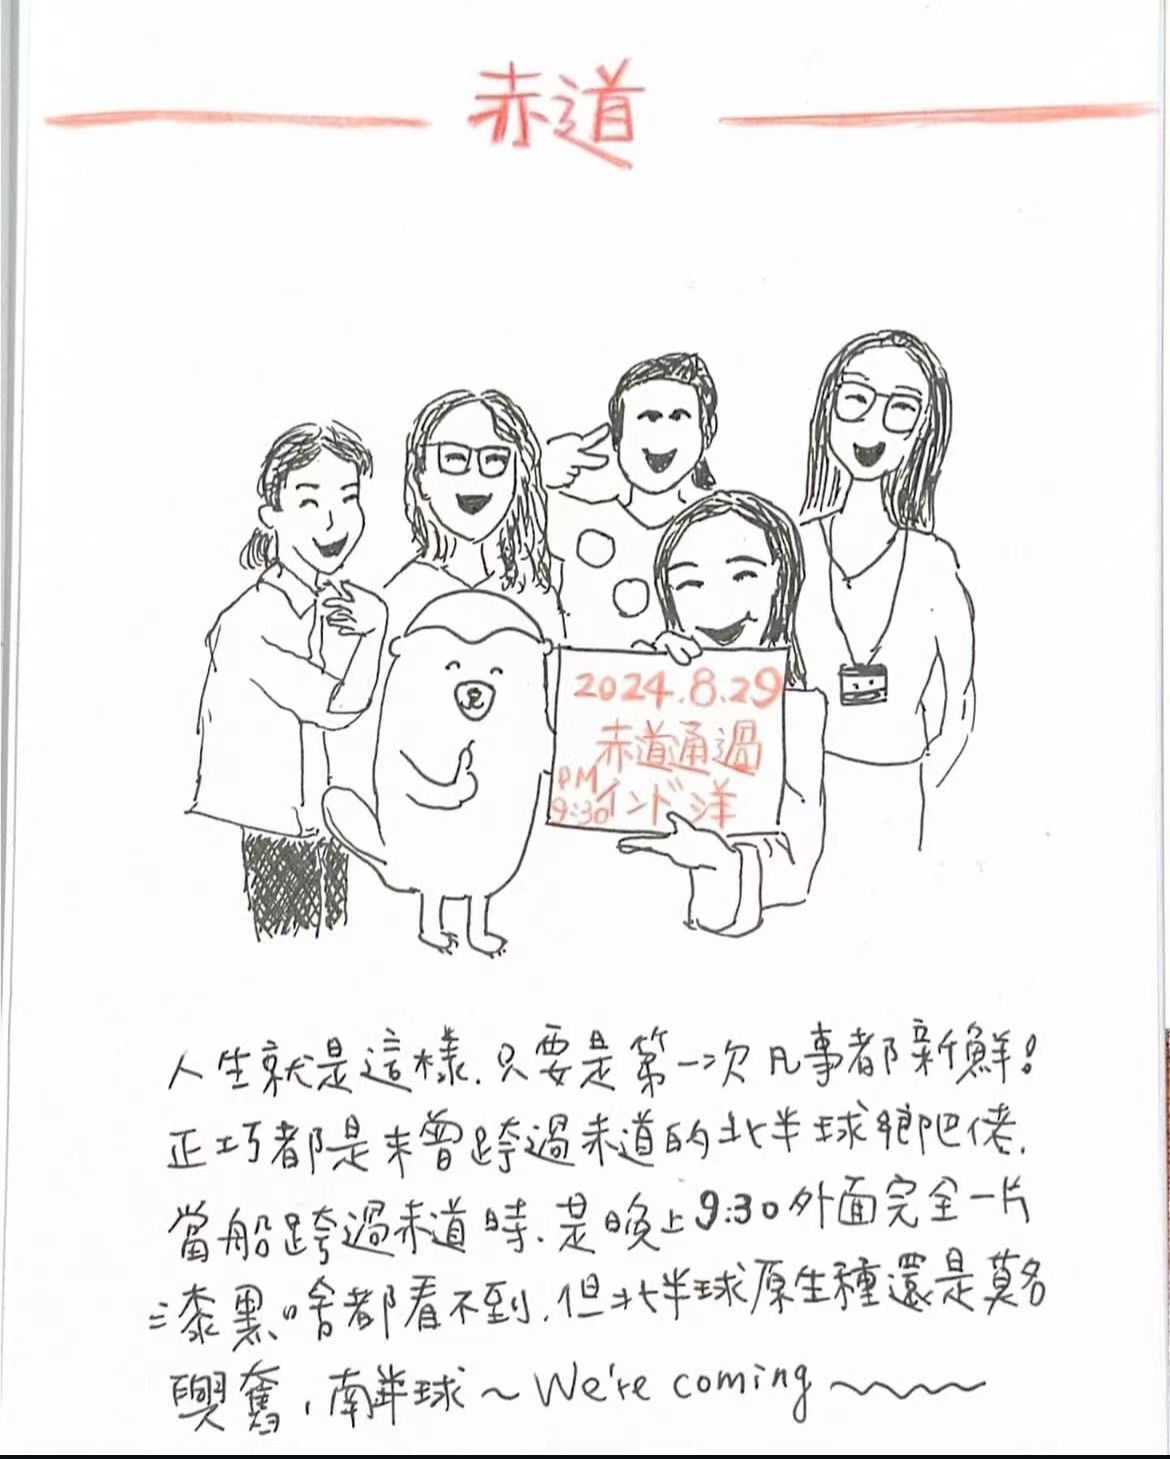 赤道
2024.8.29
赤道通過
PM
9:30 インド洋
人生就是這樣.只要是第一次凡事都新鮮!
正巧都是未曾跨過赤道的北半球鄉吧佬.
當船跨過赤道時.是晚上9:30外面完全一片
漆黑、啥都看不到.但北半球原生種還是莫名
興奮,南半球~We're coming~~~